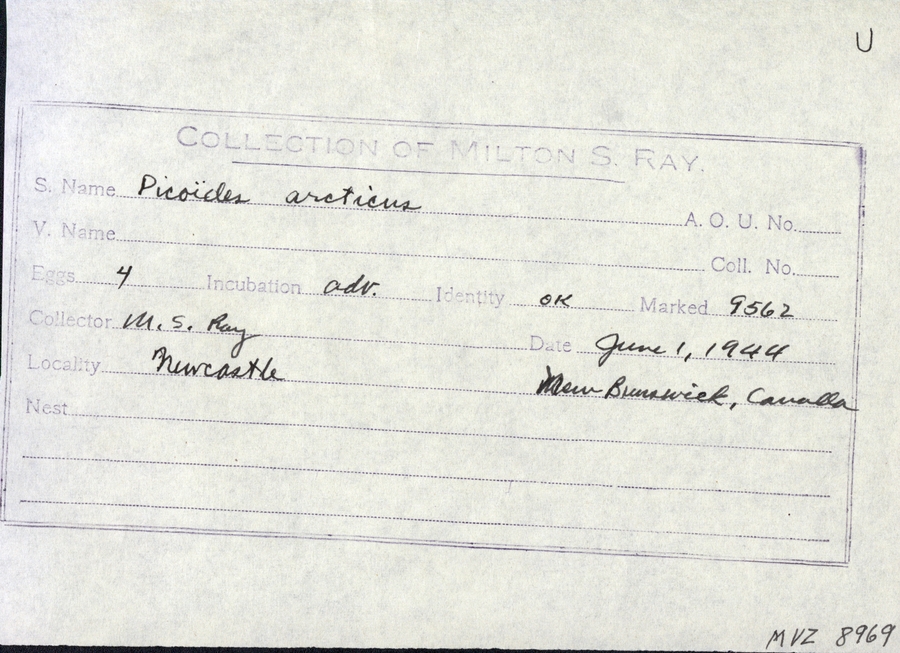 U
COLLECTION OF MILTON S. RAY.
S. Name Picoïdes arcticus A. O. U. No.
V. Name Coll. No.
Eggs 4 Incubation adv. Identity OK Marked 9562
Collector M. S. Ray Date June 1, 1944
Locality Newcastle New Brunswick, Canada
Nest
MVZ 8969